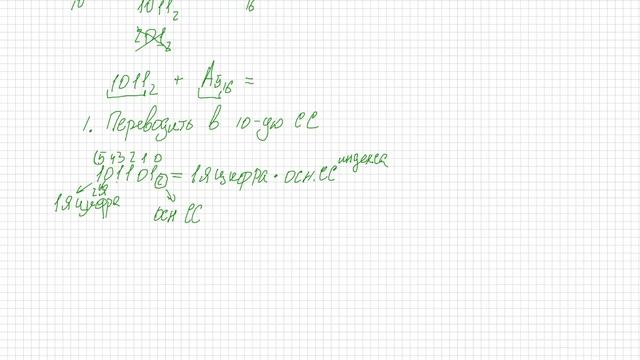 10 1011₂ 16
201₂
1011₂ + A5₁₆ =
1. Переводить в 10-ую СС
5 4 3 2 1 0
101101₂ = 1я цифра · осн. СС^индекса
1я цифра 2я осн СС